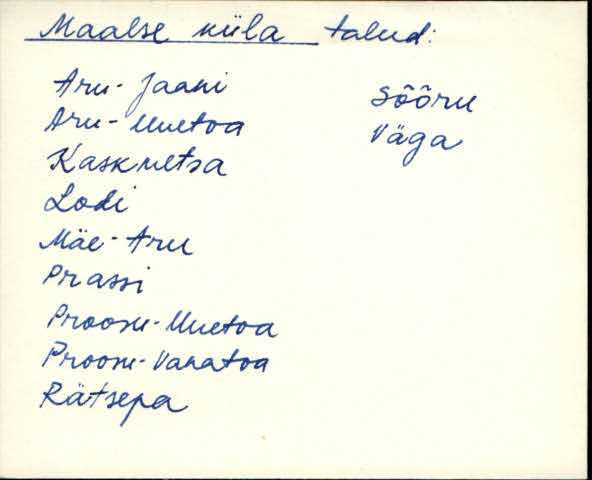 Maalse küla talud:
Aru-Jaani
Aru-Uuetoa
Kaskmetsa
Lodi
Mäe-Aru
Prassi
Proosu-Uuetoa
Proosu-Vanatoa
Rätsepa
Sõõru
Väga